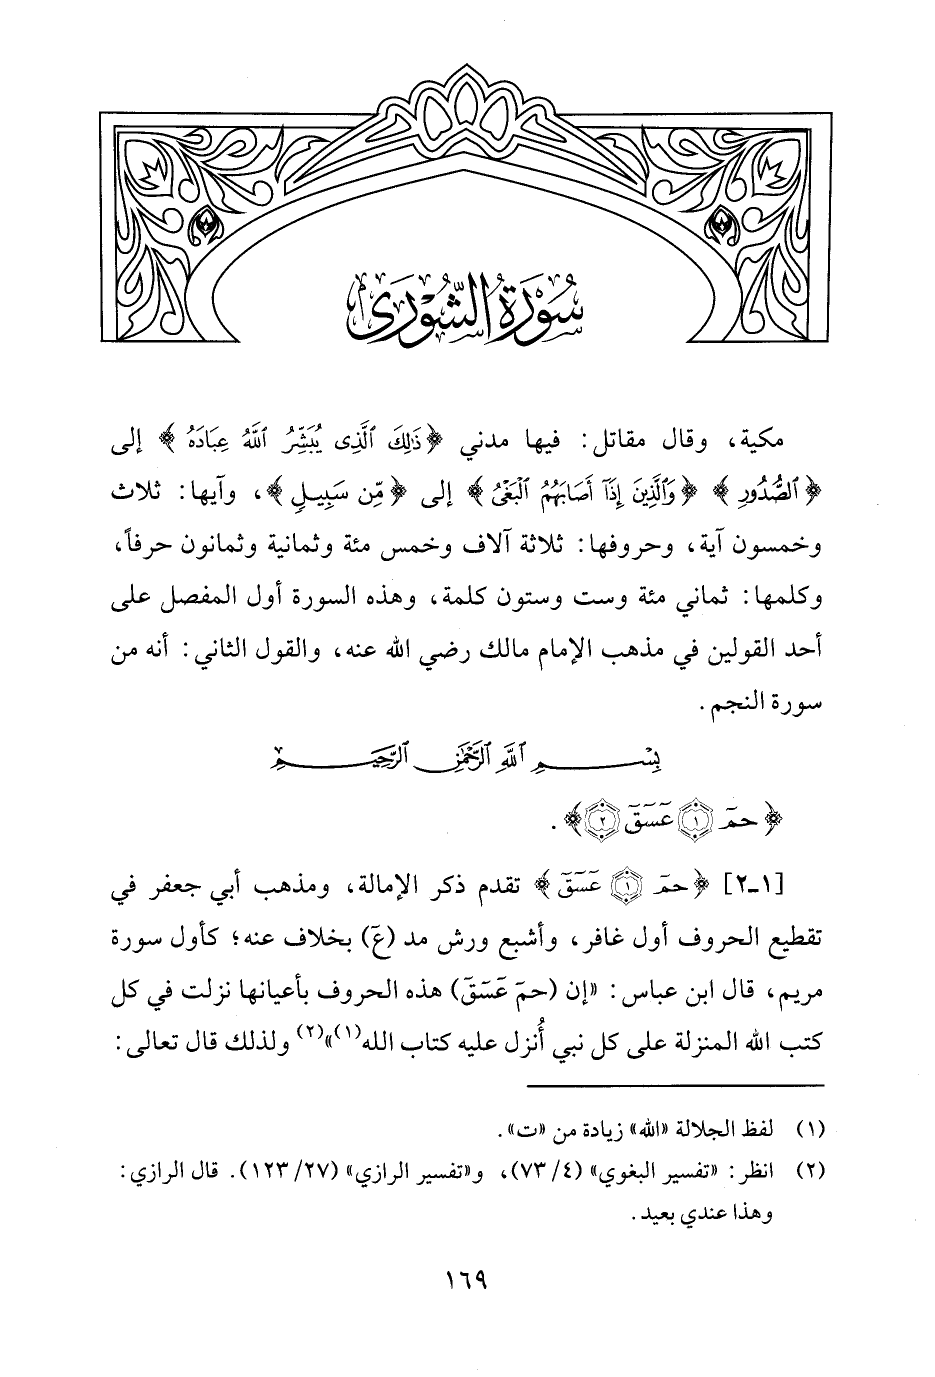 سُورَةُ الشُّورَى
مكية، وقال مقاتل: فيها مدني ﴿ذَٰلِكَ ٱلَّذِى يُبَشِّرُ ٱللَّهُ عِبَادَهُ﴾ إلى
﴿ٱلصُّدُورِ﴾ ﴿وَٱلَّذِينَ إِذَآ أَصَابَهُمُ ٱلْبَغْىُ﴾ إلى ﴿مِّن سَبِيلٍ﴾، وآيها: ثلاث
وخمسون آية، وحروفها: ثلاثة آلاف وخمس مئة وثمانية وثمانون حرفاً،
وكلمها: ثماني مئة وست وستون كلمة، وهذه السورة أول المفصل على
أحد القولين في مذهب الإمام مالك رضي الله عنه، والقول الثاني: أنه من
سورة النجم.
بِسْمِ ٱللَّهِ ٱلرَّحْمَٰنِ ٱلرَّحِيمِ
﴿حمٓ ١ عٓسٓقٓ ٢﴾.
[١-٢] ﴿حمٓ ١ عٓسٓقٓ﴾ تقدم ذكر الإمالة، ومذهب أبي جعفر في
تقطيع الحروف أول غافر، وأشبع ورش مد (عٓ) بخلاف عنه؛ كأول سورة
مريم، قال ابن عباس: «إن (حمٓ عٓسٓقٓ) هذه الحروف بأعيانها نزلت في كل
كتب الله المنزلة على كل نبي أُنزل عليه كتاب الله(١)»(٢) ولذلك قال تعالى:
(١) لفظ الجلالة «الله» زيادة من «ت».
(٢) انظر: «تفسير البغوي» (٤/ ٧٣)، و«تفسير الرازي» (٢٧/ ١٢٣). قال الرازي:
وهذا عندي بعيد.
١٦٩